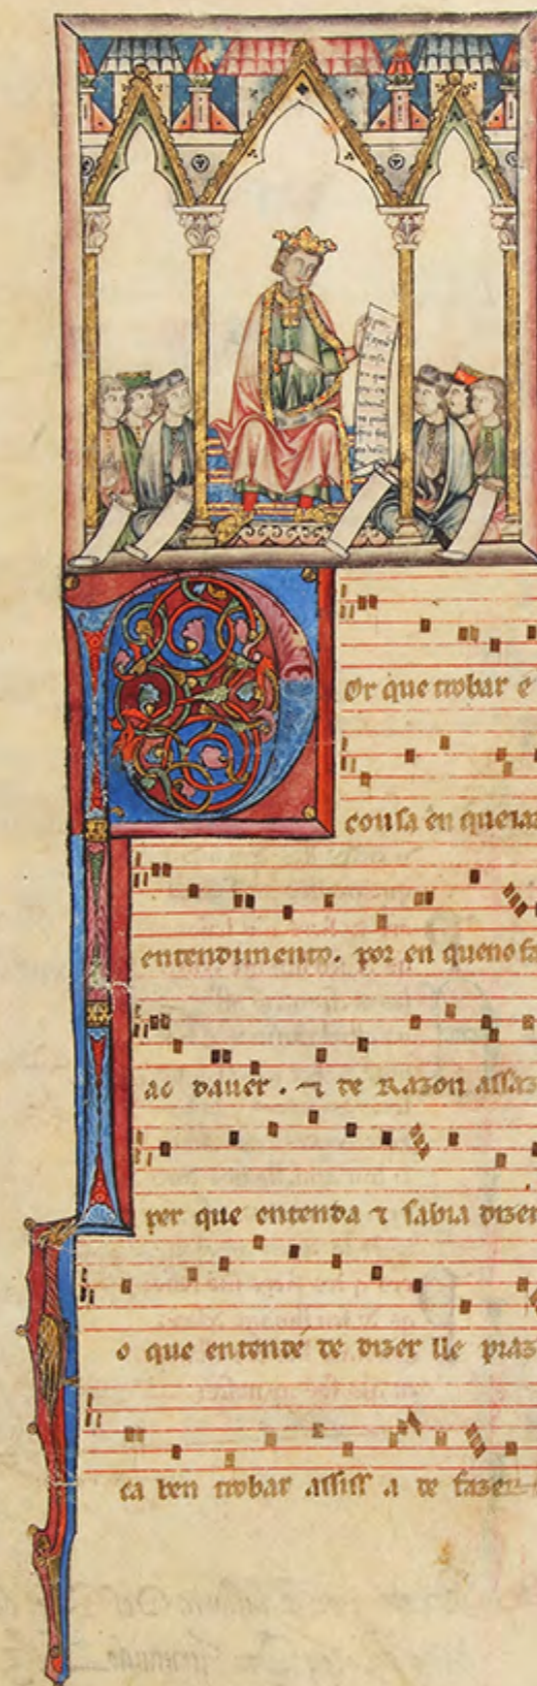 Por que trobar é
cousa en que iaz
entendimento. por en queno fa
ao dauer. ⁊ de Razon assaz
per que entenda ⁊ sabia dizer
o que entende de dizer lle praz
ca ben trobar assiss a de fazer